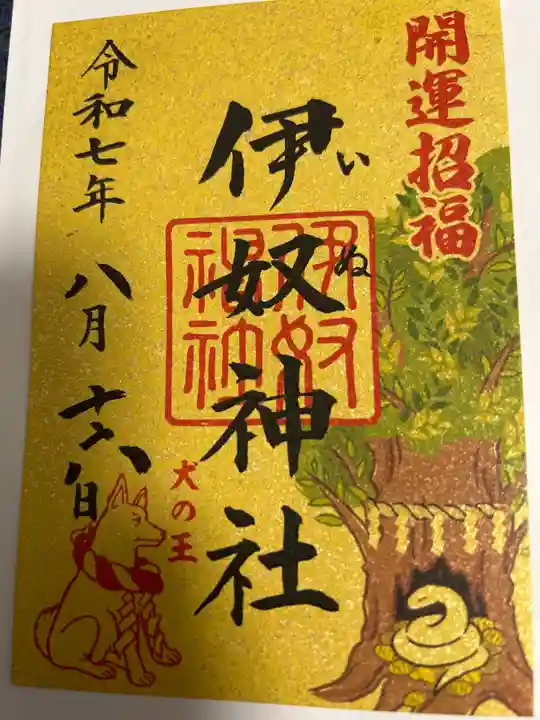 開運招福
伊奴神社
いぬ
伊奴
神社
犬の王
令和七年 八月 十六日